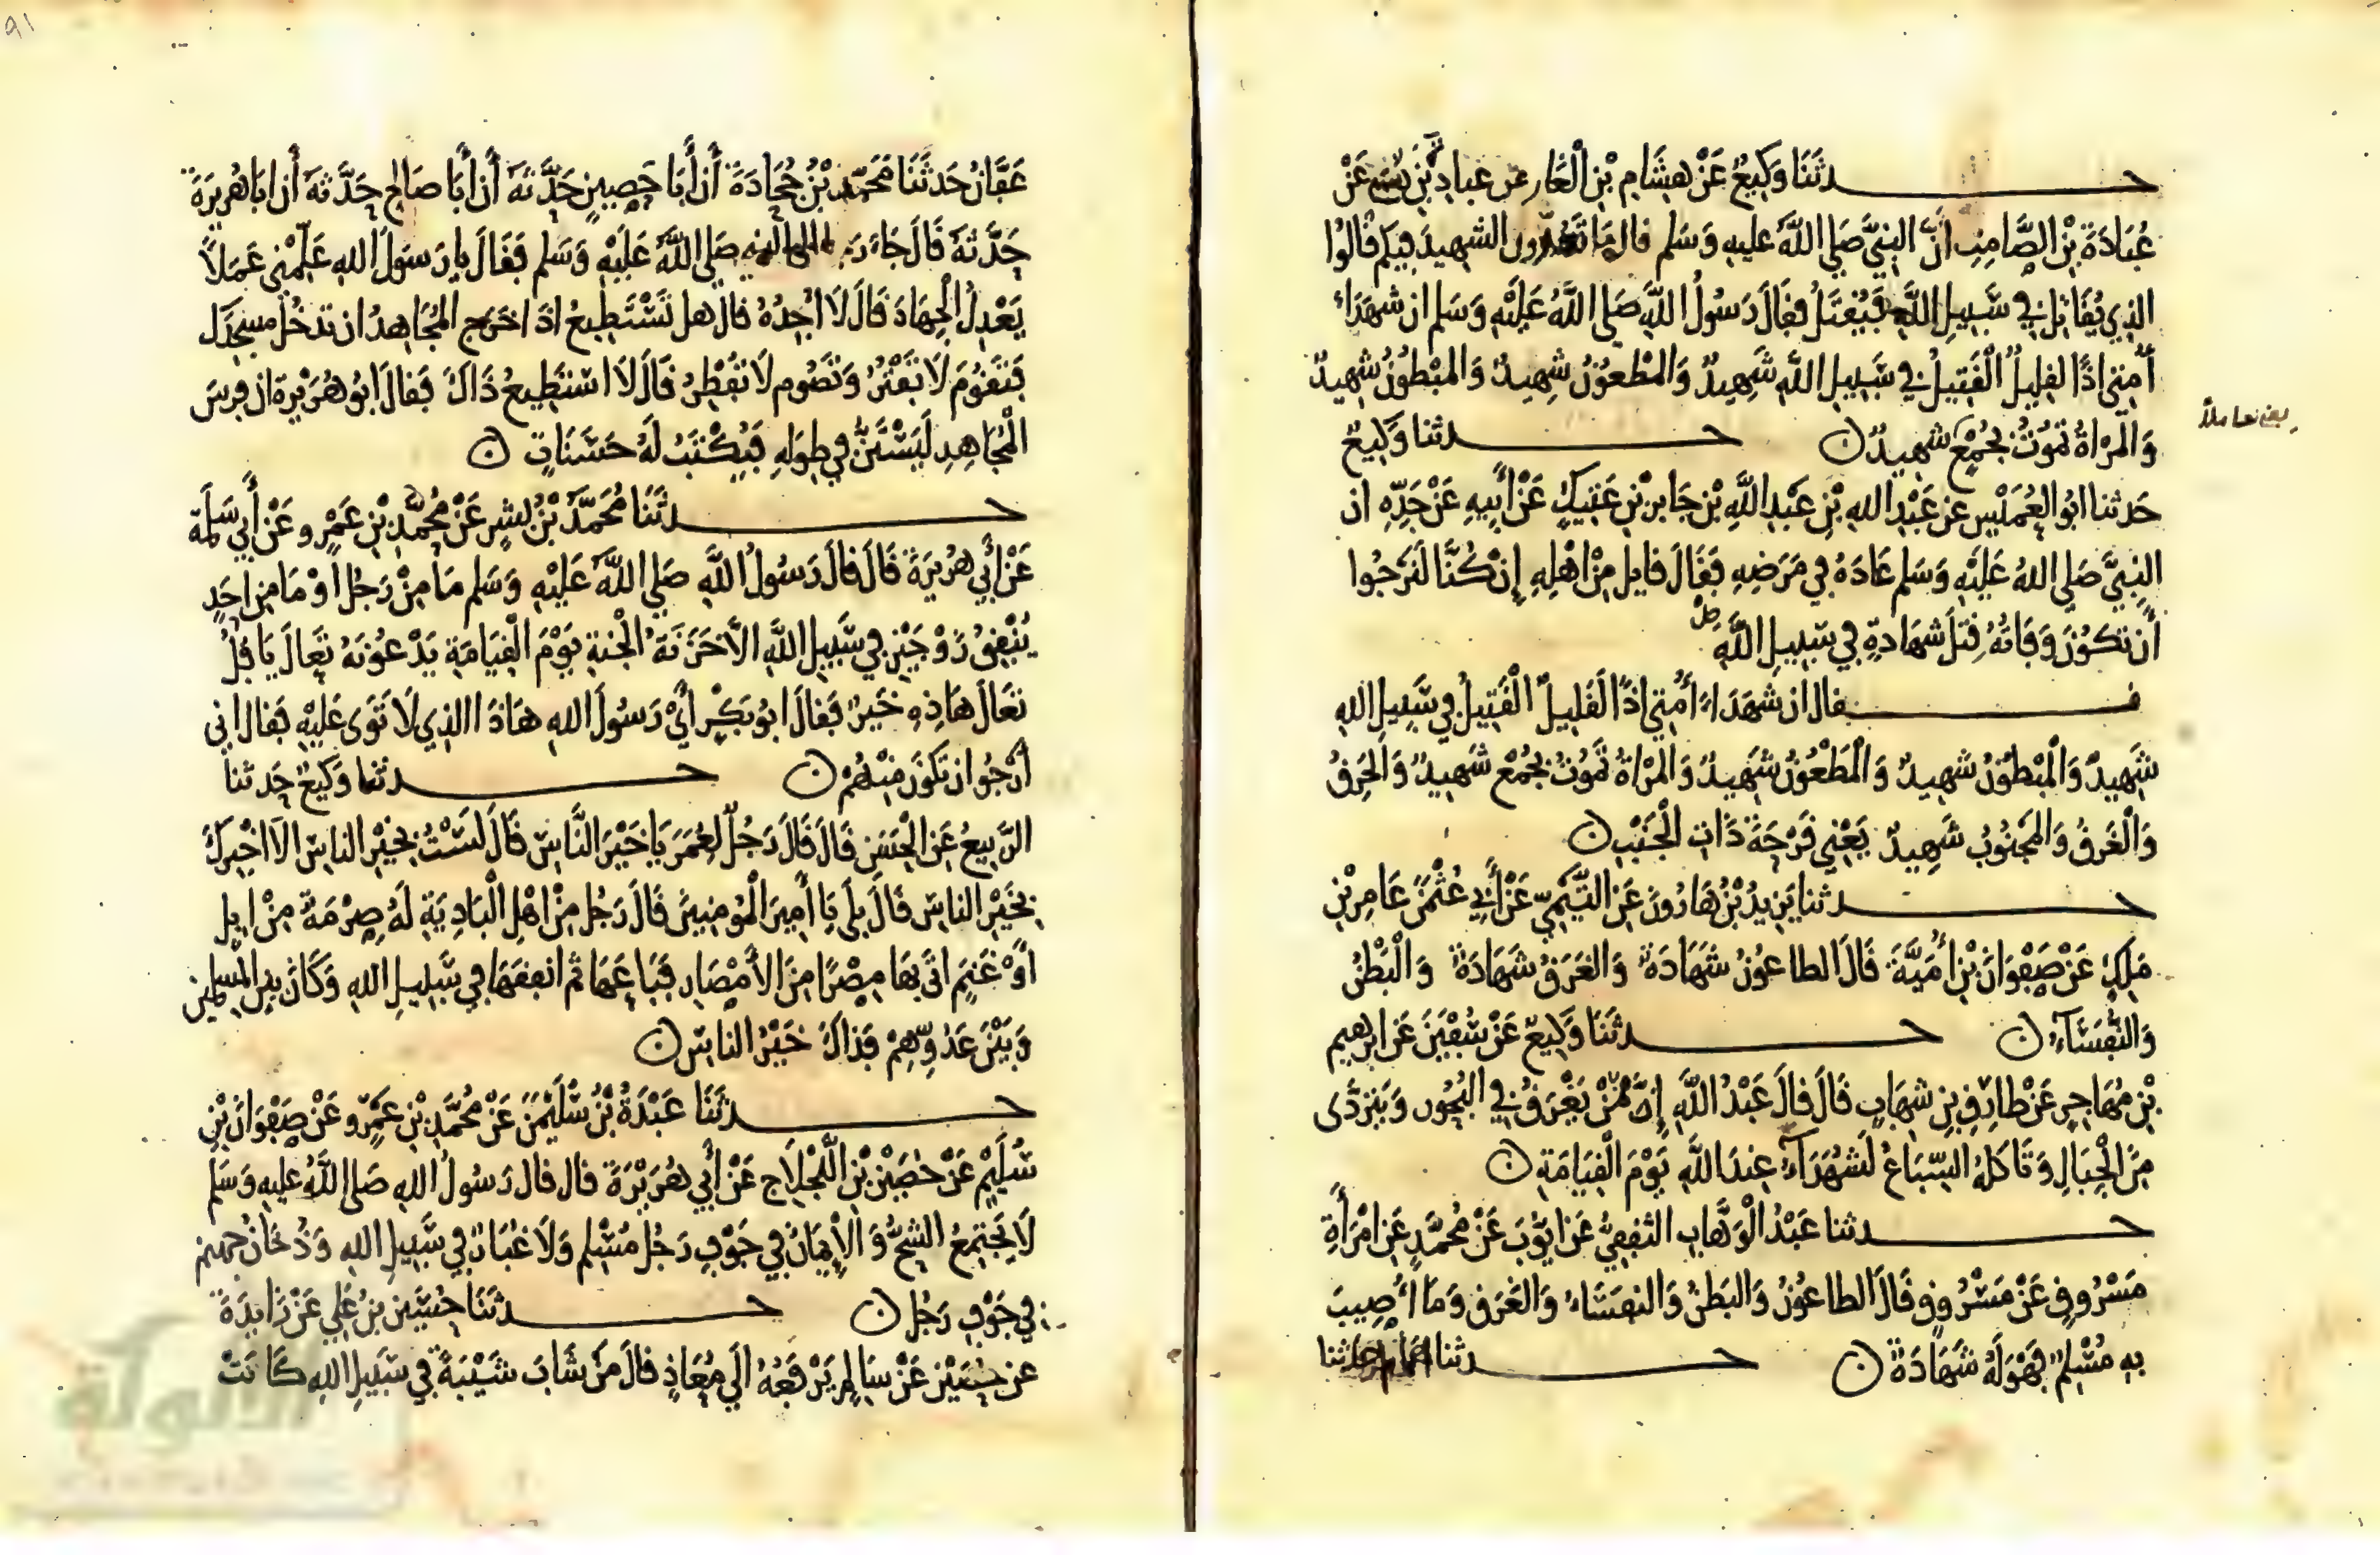 حدثَنَا وَكِيعٌ عَنْ هِشَامِ بْنِ الْغَازِ عن عبادة بْنِ نُسَيٍّ عَنْ
عُبَادَةَ بْنِ الصَّامِتِ أَنَّ النبيَّ صَلى اللَّهُ عليهِ وَسَلم قال مَا تَعُدُّونَ الشهِيدَ فِيكم قَالُوا
الذِي يُقَاتِلُ فِي سَبِيلِ اللَّهِ فَيُقْتَلُ فقَالَ رَسُولُ اللَّهِ صَلى اللَّهُ عَلَيْهِ وَسَلم ان شهَدَاءَ
أُمتِي اذًا لقليلٌ الْقَتِيلُ في سَبِيلِ اللَّهِ شَهِيدٌ وَالمْطعُونُ شَهِيدٌ وَالمَبْطُونُ شهِيدٌ
وَالْمَرْاةُ تَمُوتُ بجُمْعٍ شهِيدٌ حدثنا وَكِيعٌ
يعني حاملا
حَدثنا ابُو العُمَيْسِ عن عَبْدِ اللهِ بْنِ عَبْدِ اللَّهِ بْنِ جَابرِ بْنِ عَتِيكٍ عَنْ أَبِيهِ عَنْ جَدِّهِ ان
النبِيَّ صَلى اللهُ عَلَيْهِ وَسَلم عَادَهُ فِي مَرَضِهِ فَقَالَ قايل مِنْ اهْلِهِ إِنْ كُنَّا لَنَرْجُوا
أَن تكُونَ وَفَاتُهُ قَتْلَ شهَادةٍ فِي سَبِيلِ اللَّهِ
فقال ان شهَدَاءَ أُمتِي اذًا لَقَلِيلٌ الْقَتِيلُ فِي سَبِيلِ اللهِ
شَهِيدٌ وَالْمَبْطُونُ شهِيدٌ وَالْمَطْعُونُ شَهِيدٌ وَالمَرْاةُ تَمُوتُ بجُمْعٍ شَهِيدٌ وَالحَرِقُ
وَالْغَرِقُ وَالمَجْنُوبُ شَهِيدٌ يَعْنِي قَرْحَةَ ذَاتِ الْجَنْبِ
حدثنا يَزِيدُ بْنُ هَارُونَ عَنِ التَّيْمِيِّ عَنْ أَبِي عُثْمَنَ عَامِرِ بْنِ
مَلِكٍ عَنْ صَفْوَانَ بْنِ أُمَيَّةَ قَالَ الطاعُونُ شَهَادَةٌ وَالغَرَقُ شَهَادَةٌ وَالْبَطْنُ
وَالنُّفَسَاءُ حدثَنَا وَكِيعٌ عَنْ سُفْيَنَ عَن ابرهيم
بْنِ مُهَاجِرٍ عَنْ طَارِقِ بنِ شهَابٍ قَالَ قالَ عَبْدُ اللَّهِ إِنَّ مَنْ يَغْرَقُ فِي البُحُورِ وَيَتَرَدَّى
مِنَ الْجِبَالِ وَتَاكلُهُ السِّبَاعُ لَشُهَدَآءُ عِندَ اللَّهِ يَوْمَ الْقِيَامَةِ
حدثنا عَبْدُ الْوَهَّابِ الثقفِيُّ عَن ايُّوبَ عَنْ مُحمَّدٍ عَنِ امْرَأَةِ
مَسْرُوقٍ عَنْ مَسْرُوقٍ قَالَ الطاعُونُ وَالبَطنُ وَالنفَسَاءُ وَالغَرَقُ وَمَا أُصِيبَ
بِهِ مُسْلِمٌ فَهُوَ لَهُ شَهَادَةٌ حدثنا
عَفَّانُ حَدثَنَا مُحَمّد بْنُ جُحَادَةَ أَن أَبَا حَصِينٍ حَدَّثَهُ أَن أَبَا صَالحٍ حَدَّثهُ أَن ابَا هُرَيْرَةَ
حَدَّثَهُ قَالَ جَاءَ رَجل الى النبي صَلى اللَّهُ عَلَيْهِ وَسَلم فَقَالَ يا رَسُولَ اللهِ عَلِّمْنِي عَمَلًا
يَعْدِلُ الْجِهَادَ قَالَ لَا اجِدُهُ قالَ هل تَسْتَطِيعُ اذَا خَرَج المُجَاهِدُ ان تدخُلَ مسجدَك
فتَقُومَ لَا تَفْتُرُ وَتَصُوم لَا تفْطِرُ قَالَ لَا اسْتَطِيعُ ذَاكَ فَقالَ ابُو هُرَيْرة ان فرسَ
الْمُجَاهِدِ لَيَسْتَنُّ فِي طِوَلِهِ فَيُكْتَبُ لَهُ حَسَنَاتٍ
حدثَنَا مُحَمَّدُ بْنُ بِشرٍ عَنْ مُحَمَّدِ بْنِ عَمْرٍو عَنْ أَبِي سَلَمَة
عَنْ أَبِي هُرَيْرَةَ قَالَ قالَ رَسُولُ اللَّهِ صَلى اللَّهُ عَلَيْهِ وَسَلم مَا مِنْ رَجُلٍ اوْ مَا مِن احَدٍ
يُنْفِقُ زَوْجَيْنِ فِي سَبِيلِ اللَّهِ الاَّ خَزَنَةُ الْجَنةِ يَوْمَ الْقِيَامَةِ يَدْعُونَهُ تَعَالَ يَا فُلُ
تعَالَ هَاذِهِ خَيْرٌ فَقالَ ابُو بَكْرٍ أَيْ رَسُولَ اللهِ هَاذَا الذِي لَا تَوَى عَلَيْهِ فَقال انِي
أَرْجُو ان تَكُونَ مِنْهُمْ حدثنا وَكِيعٌ حَدثنا
الرَّبِيعُ عَنِ الْحَسَنِ قَالَ قَالَ رَجُلٌ لِعُمَرَ يَا خَيْرَ النَّاسِ قَالَ لَسْتُ بخَيْرِ الناسِ الَا اخْبِرُكَ
بخَيْرِ الناسِ قَالَ بلَى يَا أَمِيرَ الْمُومِنِينَ قَالَ رَجُل مِنْ اهْلِ الْبَادِيَةِ لَهُ صِرْمَةٌ مِنْ ابِلٍ
اوْ غَنَمٍ اتَى بهَا مِصْرًا مِنَ الْأَمْصَارِ فَبَاعَهَا ثم انْفقَهَا فِي سَبِيلِ اللهِ وَكَانَ بين المسلمين
وَبَيْنَ عَدُوِّهِمْ فَذَاكَ خَيْرُ الناسِ
حدثَنَا عَبْدَةُ بْنُ سُلَيْمَنَ عَنْ مُحمَّدِ بْنِ عَمْرٍو عَنْ صَفْوَانَ بْنِ
سُلَيْمٍ عَنْ حُصَيْنِ بْنِ اللَّجْلَاجِ عَنْ أَبِي هُرَيْرَةَ قالَ قالَ رَسُولُ اللهِ صَلى اللَّهُ عليهِ وَسَلم
لَا يَجْتَمِعُ الشُّحُّ وَالْإِيمَانُ فِي جَوْفِ رَجُلٍ مُسْلِمٍ وَلَا غُبَارٌ فِي سَبِيلِ اللهِ وَدُخَانُ جهنم
فِي جَوْفِ رَجُلٍ حدثَنَا حُسَيْن بنُ عَلِيٍ عَنْ زَايِدَةَ
عن حُصَيْنٍ عَنْ سَالِمٍ يَرْفَعُهُ الَى مُعَاذٍ قالَ مَنْ شَابَ شَيْبَةً فِي سَبِيلِ اللهِ كَانَتْ
الألوكة